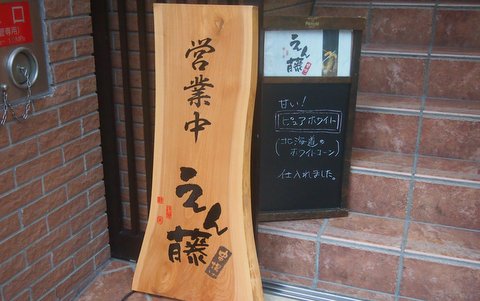 営業中
えん藤
えん
藤
甘い!
ピュアホワイト
(北海道の
ホワイトコーン)
仕入れました。